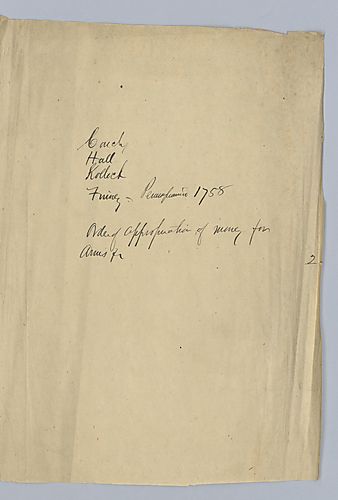 Couch
Hall
Kollock
Finney - Pennsylvania 1758
Order of appropriation of money for
Arms &c
2